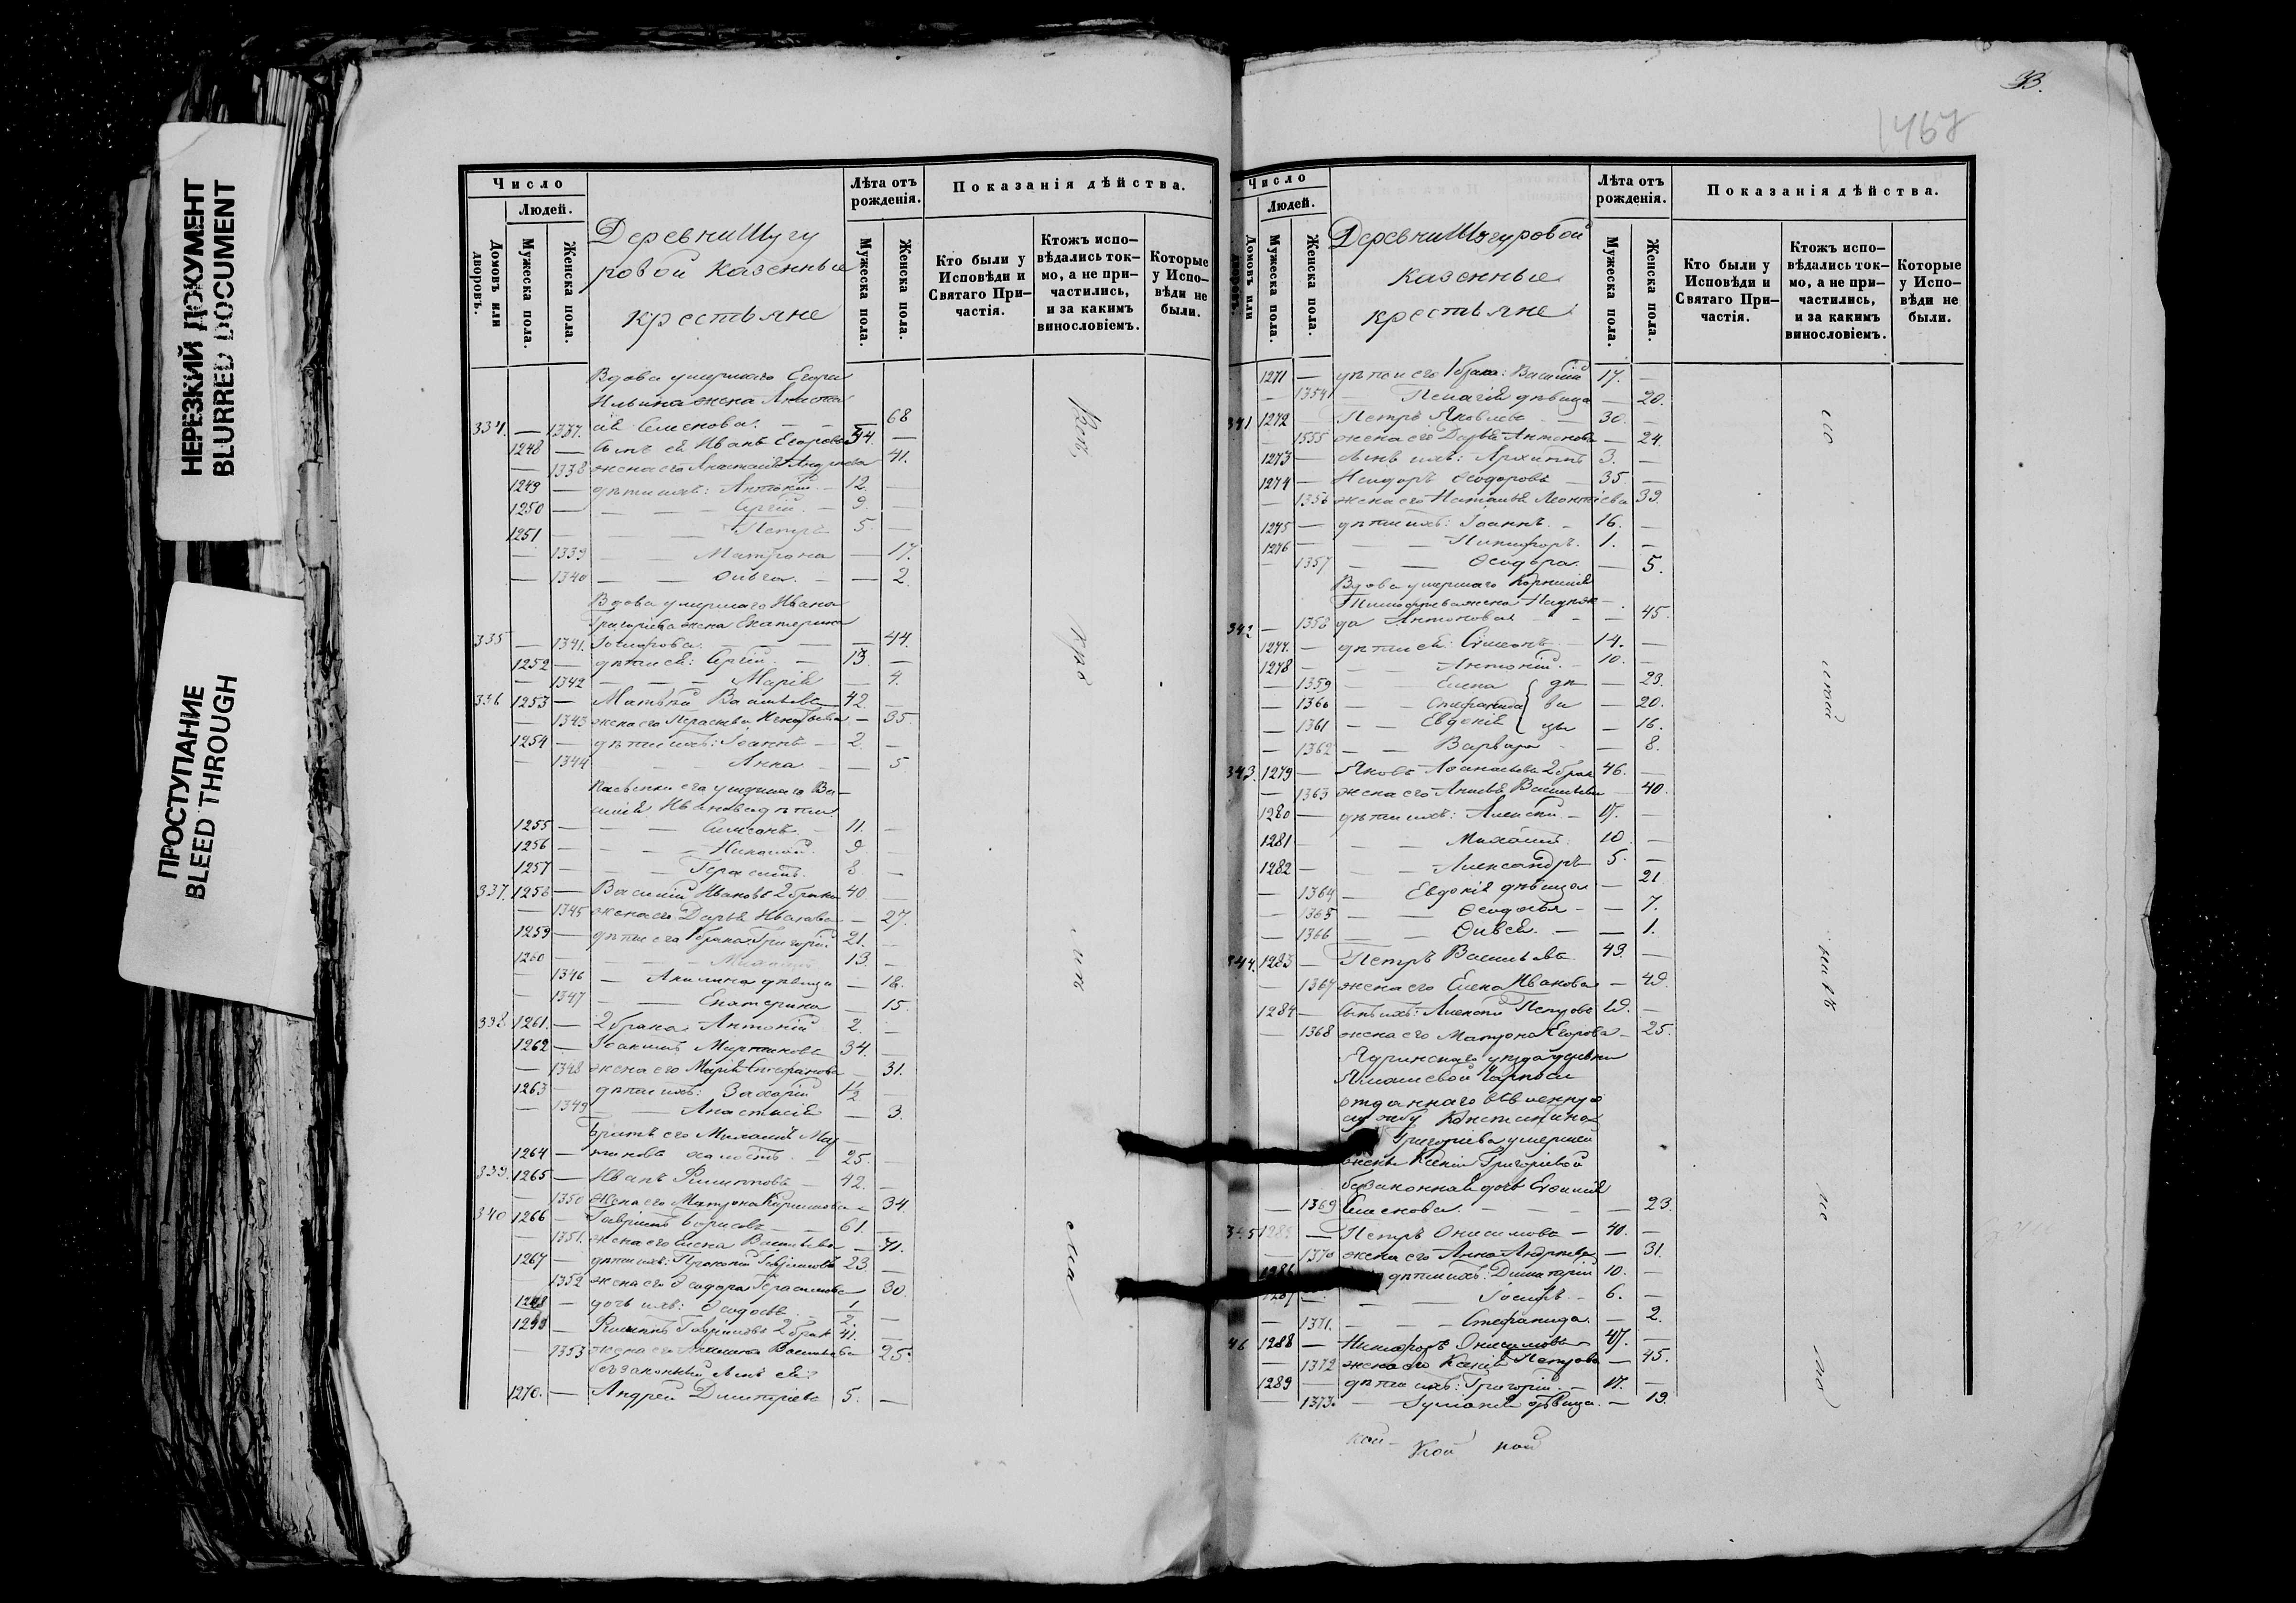 НЕРЕЗКИЙ ДОКУМЕНТ
BLURRED DOCUMENT
ПРОСТУПАНИЕ
BLEED THROUGH
Число
Людей.
Домовъ или дворовъ.
Мужеска пола.
Женска пола.
Деревни Шугу
ровой казенные
крестьяне
Лѣта отъ рожденія.
Мужеска пола.
Женска пола.
Показанія дѣйства.
Кто были у Исповѣди и Святаго При-
частія.
Ктожъ испо-
вѣдались ток-
мо, а не при-
частились,
и за какимъ
винословіемъ.
Которые
у Испо-
вѣди не
были.
Вдова умершаго Егора
Ильина жена Анаста
334. — 1337. сія Семенова. — — 68
1248 — Сынъ ея Иванъ Егоровъ 44. —
— 1338 жена его Анастасія Андреева 41.
1249 — дѣти ихъ: Антоній — 12. —
1250 — — — Сергій — 9. —
1251 — — Петръ 5. —
— 1339 — — Матрона — 17.
— 1340 — — Ольга. — — 2.
Вдова умершаго Ивана
Григорьева жена Екатерина
335 — 1341. — — 44.
1252 — дѣти ея: Сергій — 13. —
— 1342 — — — Марія — 4.
336 1253 — Матвѣй Васильевъ 42. —
— 1343 жена его Параскева — 35.
1254 — дѣти ихъ: Іоаннъ — 2. —
— 1344 — — Анна — — 5
его умершаго Ва-
силія Иванова дѣти
1255 — — — Симеонъ. — 11. —
1256 — — — Николай. 9. —
1257 — — — Герасимъ. 8 —
337. 1258 — Василій Ивановъ 2 брака 40. —
— 1345 жена его Дарья Иванова — 27.
1259 — дѣти его 1 брака: Григорій 21. —
1260 — — — Михаилъ 13. —
— 1346 — Акилина дѣвица — 18.
— 1347 — — Екатерина — 15.
338 1261. — 2 брака Антоній 2. —
1262 — Іоакимъ Мартиновъ 34. —
— 1348 жена его Марія Стефанова — 31.
1263 — дѣти ихъ: Захарій 1/2 —
— 1349 — — Анастасія — 3.
Братъ его Михаилъ Мар
1264 — тиновъ холостъ. — 25. —
339. 1265 — Иванъ Филипповъ — 42. —
— 1350 жена его Матрона Кириллова — 34.
340 1266 — Гавріилъ Борисовъ — 61. —
— 1351. жена его Елена Васильева — 71.
1267 — дѣти ихъ: Прокопій Гавриловъ 23. —
— 1352 жена его Ѳеодора Герасимова 30
1268 — дочь ихъ: Ѳеодосія
1269 — Филиппъ Гавриловъ 2 брака 41. —
— 1353 жена его Васильева 25.
беззаконный сынъ ея:
1270. — Андрей Димитріевъ 5. —
33.
1467
Число
Людей.
Домовъ или дворовъ.
Мужеска пола.
Женска пола.
Деревни Шугуровой
казенные
крестьяне
Лѣта отъ рожденія.
Мужеска пола.
Женска пола.
Показанія дѣйства.
Кто были у Исповѣди и Святаго При-
частія.
Ктожъ испо-
вѣдались ток-
мо, а не при-
частились,
и за какимъ
винословіемъ.
Которые
у Испо-
вѣди не
были.
1271 — дѣти его 1 брака: Василій 17. —
— 1354 — Пелагія дѣвица — 20.
341 1272 — Петръ Яковлевъ — 30. —
— 1355 жена его Дарья Антонова — 24.
1273 — сынъ ихъ: Архиппъ 3. —
1274 — Исидоръ Ѳеодоровъ — 35. —
— 1356 жена его Наталья Леонтіева 39.
1275 — дѣти ихъ: Іоаннъ. — 16. —
1276 — — — Никифоръ. 1. —
— 1357 — — Ѳеодора. — 5.
Вдова умершаго Корнилія
Тимофеева жена Надеж-
342 — 1358 да Антонова — — 45.
1277. — дѣти ея: Симеонъ — 14. —
1278 — — Антоній. — 10. —
— 1359 — — Елена дѣ — 23.
— 1360 — — Стефанида ви — 20.
— 1361 — — Евдокія цы — 16.
— 1362 — — Варвара — 8.
343. 1279 — Яковъ Аѳанасьевъ 2 брак 46. —
— 1363 жена его Васильева — 40.
1280 — дѣти ихъ: Алексій — 17. —
1281 — — — Михаилъ. 10. —
1282 — — — Александръ 5. —
— 1364 — Евдокія дѣвица — 21
— 1365 — — Ѳеодосія — — 7.
— 1366 — — Ольга. — — 1.
344. 1283 — Петръ Васильевъ 43. —
— 1367 жена его Елена Иванова — 48.
1284 — сынъ ихъ: Алексій Петровъ 18. —
— 1368 жена его Матрона Егорова — 25.
Ядринскаго уѣзда деревни
отданнаго въ военную
службу Константина
Григорьева умершей
жены Ксеніи Григоріевой
беззаконная дочь Евфимія
— 1369 Семенова. — — — 23.
345 1285 — Петръ Онисимовъ — 40. —
— 1370 жена его Анна Андреева — 31.
1286 дѣти ихъ: Димитрій 10. —
1287 — — — Іосифъ — 6. —
— 1371. — — — Стефанида. — 2.
46 1288 — Никифоръ Онисимовъ 47. —
— 1372 жена его Ксенія Петрова — 45.
1289 — дѣти ихъ: Григорій — 17. —
— 1373. — Іуліанія дѣвица. — 19.
кой — кой кой